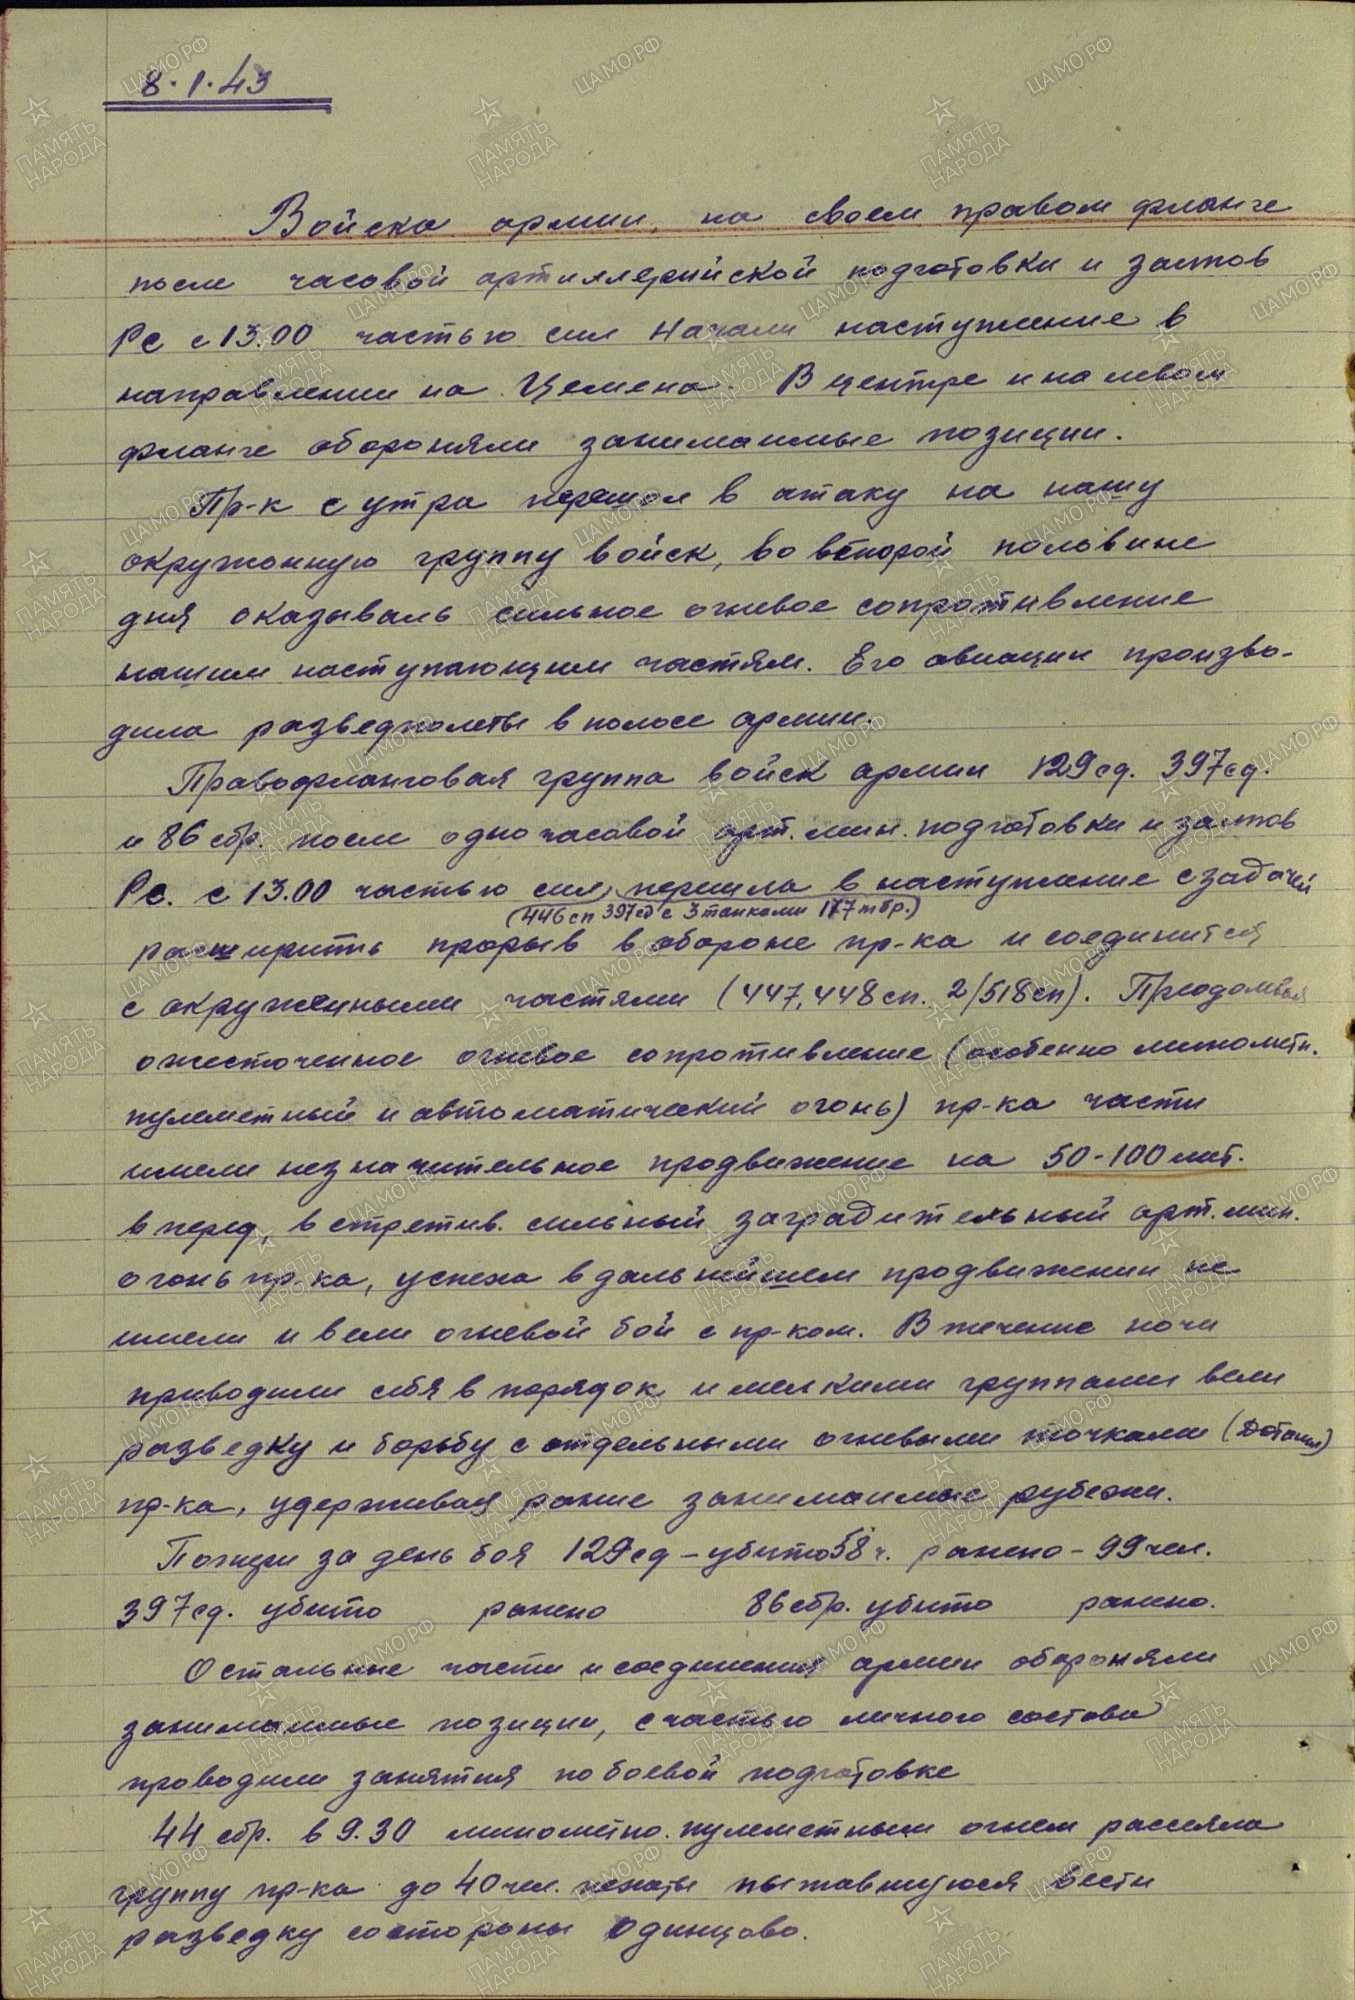 8.1.43
Войска армии, на своем правом фланге
после часовой артиллерийской подготовки и залпов
Рс с 13.00 частью сил начали наступление в
направлении на Цемена. В центре и на левом
фланге обороняли занимаемые позиции.
Пр-к с утра перешол в атаку на нашу
окружонную группу войск, во второй половине
дня оказываль сильное огневое сопротивление
нашим наступающим частям. Его авиации произво-
дила разведполеты в полосе армии.
Правофланговая группа войск армии 129сд. 397сд.
и 86 сбр. после одночасовой арт. мин. подготовки и залпов
Рс. с 13.00 частью сил, перешла в наступление с задачей
(446сп 397сд с 3 танками 177тбр.)
расширить прорыв в обороне пр-ка и соединится
с окружеными частями (447, 448сп. 2/518сп). Преодолевая
ожесточенное огневое сопротивление (особенно минометн.
пулеметный и автоматический огонь) пр-ка части
имели незначительное продвижение на 50-100 мт.
вперед, встретив. сильный заградительный арт. мин.
огонь пр-ка, успеха в дальнейшем продвижении не
имели и вели огневой бой с пр-ком. В течение ночи
приводили себя в порядок и мелкими группами вели
разведку и борьбу с отдельными огневыми точками (Дотами)
пр-ка, удерживая рание занимаемые рубежи.
Потери за день боя 129сд – убито 58 ч. ранено – 99 чел.
397сд. убито ранено 86 сбр. убито ранено.
Остальные части и соединения армии обороняли
занимаемые позиции, с частью личного состава
проводили занятия по боевой подготовке
44 сбр. в 9.30 минометно. пулеметным огнем рассеяла
группу пр-ка до 40 чел. пехоты пытавшуюся вести
разведку со стороны Одинцово.
ПАМЯТЬ НАРОДА
ЦАМО.РФ